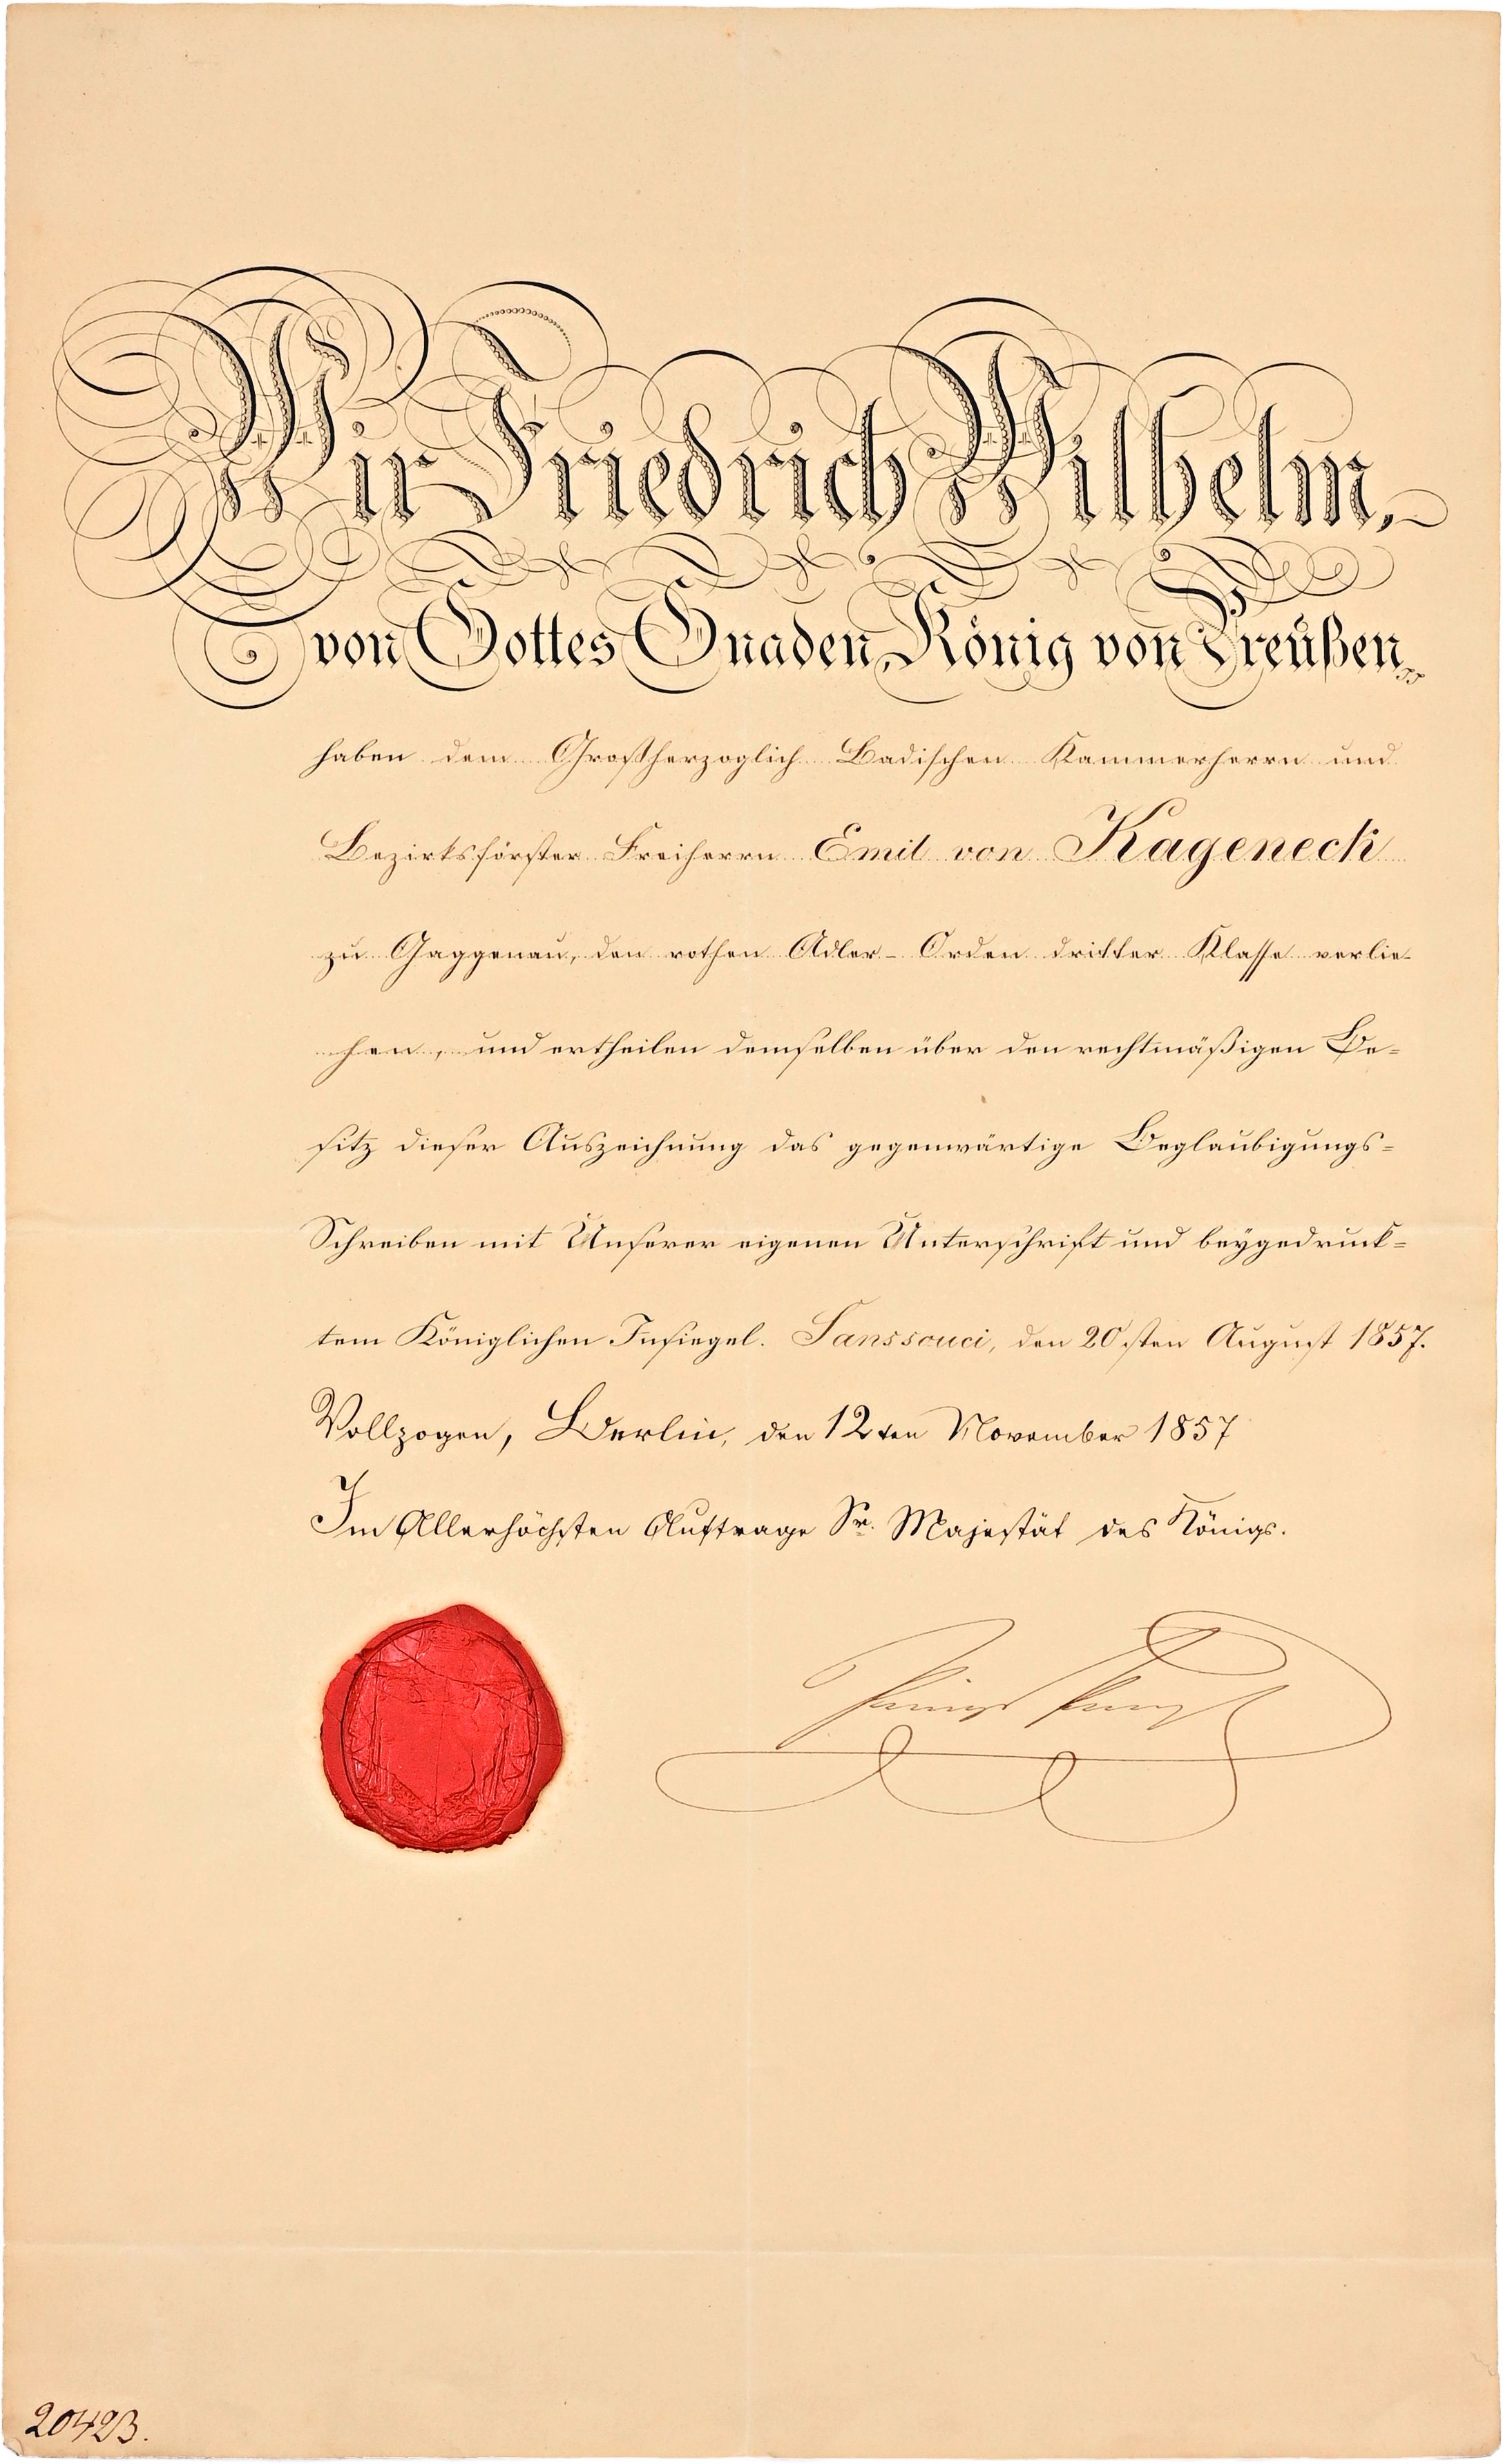 Wir Friedrich Wilhelm,
von Gottes Gnaden, König von Preußen
haben dem Großherzoglich Badischen Kammerherrn und
Bezirksförster Freiherrn Emil von Kageneck
zu Gaggenau, den rothen Adler-Orden dritter Klasse verlie-
hen, und ertheilen demselben über den rechtmäßigen Be-
sitz dieser Auszeichnung das gegenwärtige Beglaubigungs-
Schreiben mit Unserer eigenen Unterschrift und beygedruck-
tem Königlichen Insiegel. Sanssouci, den 20sten August 1857.
Vollzogen, Berlin, den 12ten November 1857
Im Allerhöchsten Auftrage Sr. Majestät des Königs.
20423.